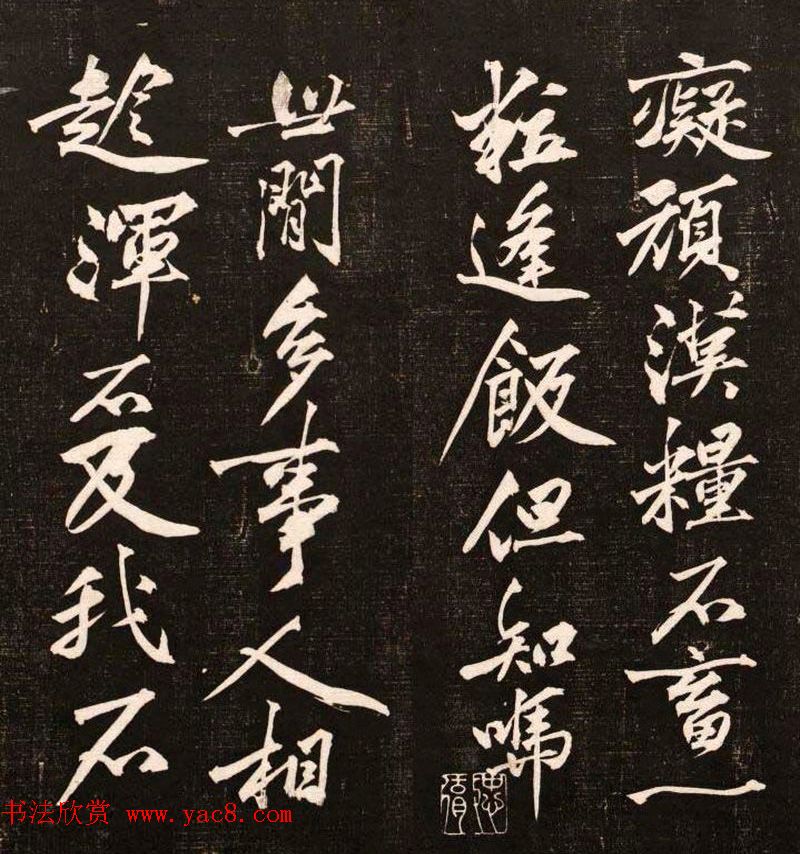 癡頑漢糧不畜一
粒逢飯但知嗎
世間多事人相
趁渾不及我不
书法欣赏 www.yac8.com